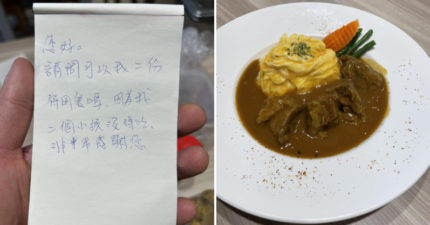 您好。
請問可以 二份
待用餐嗎,因為我
二個小孩沒得吃,
非常感謝您